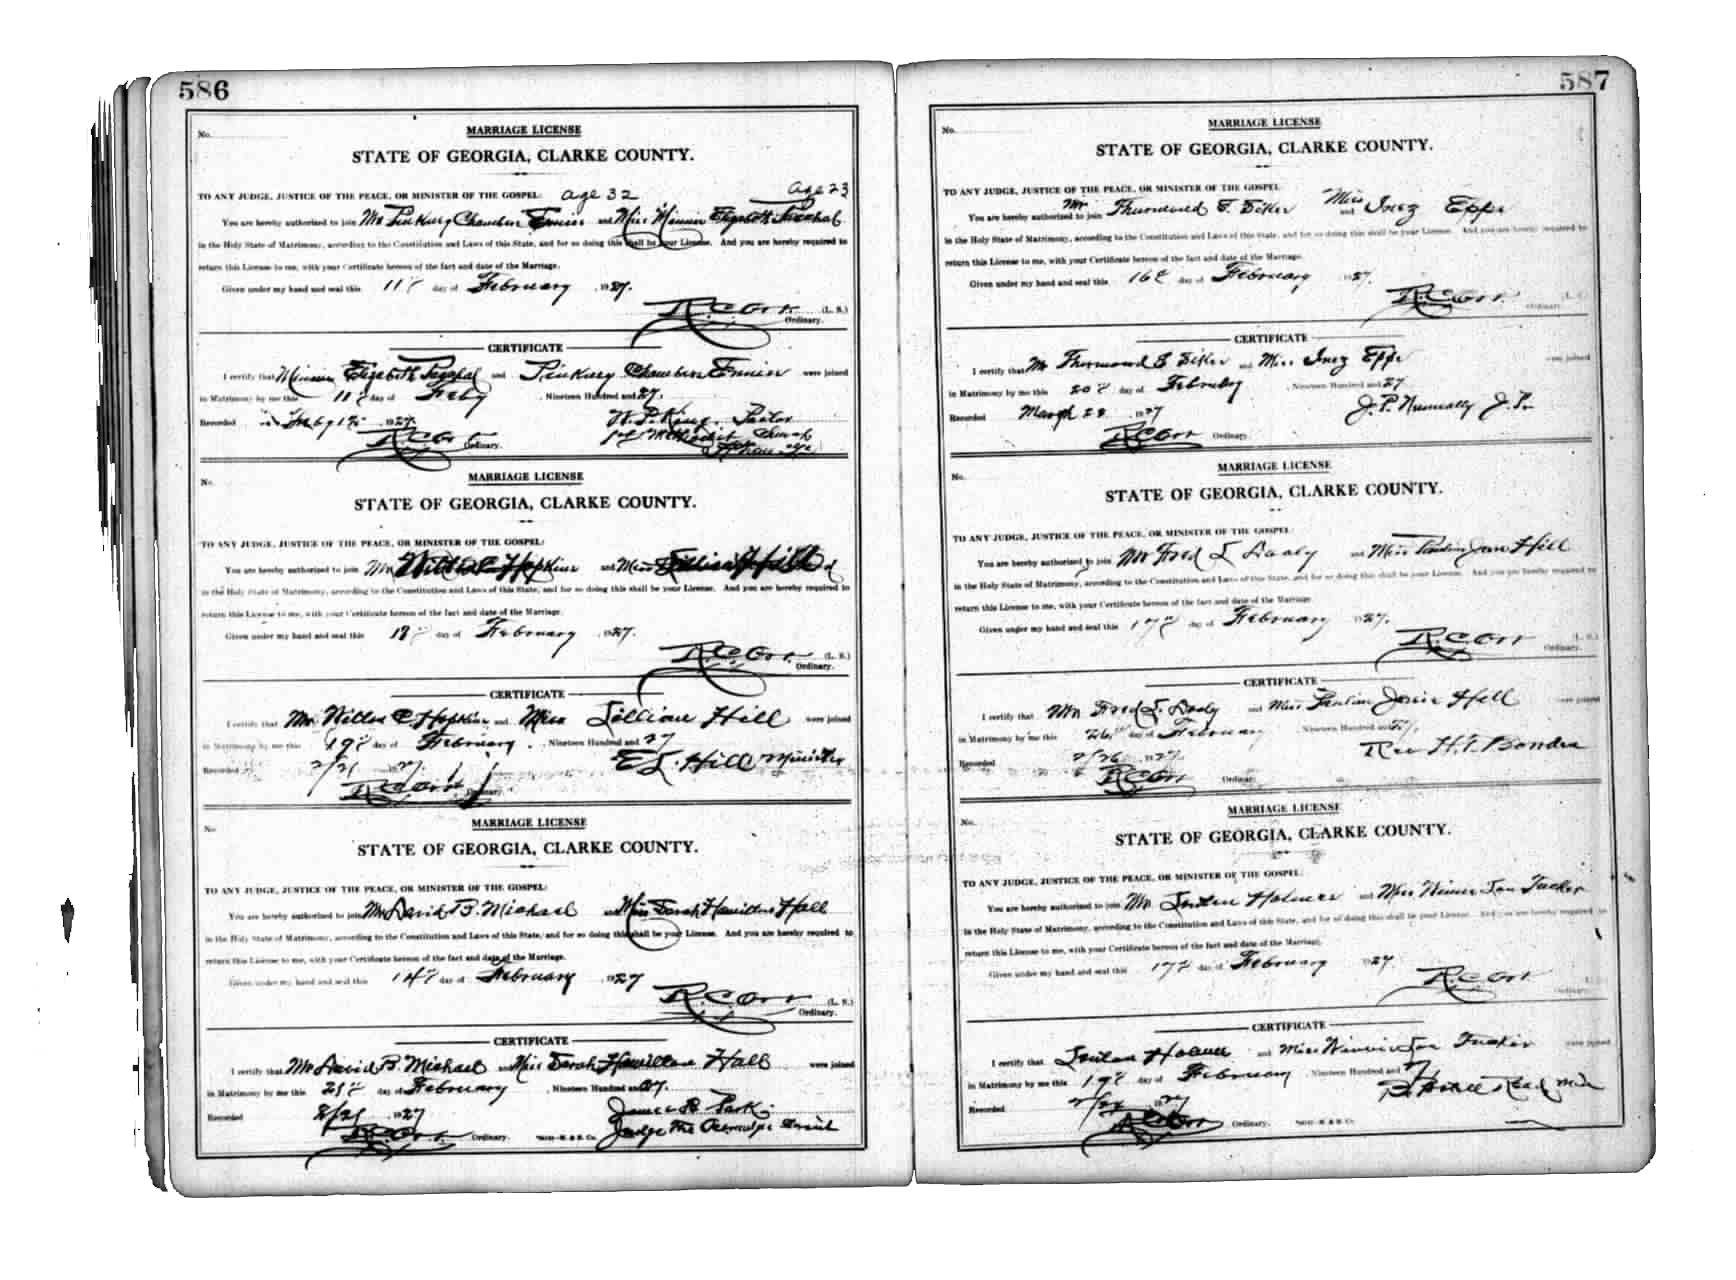 586
No.
MARRIAGE LICENSE
STATE OF GEORGIA, CLARKE COUNTY.
TO ANY JUDGE, JUSTICE OF THE PEACE, OR MINISTER OF THE GOSPEL: age 32 age 23
You are hereby authorized to join Mr and Miss Elizabeth
in the Holy State of Matrimony, according to the Constitution and Laws of this State, and for so doing this shall be your License. And you are hereby required to
return this License to me, with your Certificate hereon of the fact and date of the Marriage.
Given under my hand and seal this 11 day of February 1927.
R.C. Orr (L. S.)
Ordinary.
CERTIFICATE
I certify that Elizabeth and were joined
in Matrimony by me this 11 day of Feby , Nineteen Hundred and 27.
Recorded 1927. W. P. King, Pastor
R.C. Orr Ordinary. Methodist Church
MARRIAGE LICENSE
No.
STATE OF GEORGIA, CLARKE COUNTY.
TO ANY JUDGE, JUSTICE OF THE PEACE, OR MINISTER OF THE GOSPEL:
You are hereby authorized to join Mr Hopkins and Miss Lillian Hill
in the Holy State of Matrimony, according to the Constitution and Laws of this State, and for so doing this shall be your License. And you are hereby required to
return this License to me, with your Certificate hereon of the fact and date of the Marriage.
Given under my hand and seal this day of February 1927.
R.C. Orr (L. S.)
Ordinary.
CERTIFICATE
I certify that Mr C Hopkins and Miss Lillian Hill were joined
in Matrimony by me this 19 day of February , Nineteen Hundred and 27
Recorded 2/21 1927. E L. Hill Minister
R.C. Orr Ordinary.
MARRIAGE LICENSE
No.
STATE OF GEORGIA, CLARKE COUNTY.
TO ANY JUDGE, JUSTICE OF THE PEACE, OR MINISTER OF THE GOSPEL:
You are hereby authorized to join Mr David B. Michael and Miss Sarah Hamilton Hall
in the Holy State of Matrimony, according to the Constitution and Laws of this State, and for so doing this shall be your License. And you are hereby required to
return this License to me, with your Certificate hereon of the fact and date of the Marriage.
Given under my hand and seal this 14 day of February 1927
R.C. Orr (L. S.)
Ordinary.
CERTIFICATE
I certify that Mr David B. Michael and Miss Sarah Hamilton Hall were joined
in Matrimony by me this day of February , Nineteen Hundred and 27.
Recorded 2/21 1927 James B. Park
R.C. Orr Ordinary. Judge
587
No.
MARRIAGE LICENSE
STATE OF GEORGIA, CLARKE COUNTY.
TO ANY JUDGE, JUSTICE OF THE PEACE, OR MINISTER OF THE GOSPEL:
You are hereby authorized to join Mr and Miss Inez Epps
in the Holy State of Matrimony, according to the Constitution and Laws of this State, and for so doing this shall be your License. And you are hereby required to
return this License to me, with your Certificate hereon of the fact and date of the Marriage.
Given under my hand and seal this 16 day of February 1927.
R.C. Orr (L. S.)
Ordinary.
CERTIFICATE
I certify that Mr and Miss Inez Epps were joined
in Matrimony by me this 20 day of February , Nineteen Hundred and 27
Recorded March 28 1927 J. P. Nunnally J. P.
R.C. Orr Ordinary.
MARRIAGE LICENSE
No.
STATE OF GEORGIA, CLARKE COUNTY.
TO ANY JUDGE, JUSTICE OF THE PEACE, OR MINISTER OF THE GOSPEL:
You are hereby authorized to join Mr Fred and Miss Hill
in the Holy State of Matrimony, according to the Constitution and Laws of this State, and for so doing this shall be your License. And you are hereby required to
return this License to me, with your Certificate hereon of the fact and date of the Marriage.
Given under my hand and seal this 17 day of February 1927.
R.C. Orr (L. S.)
Ordinary.
CERTIFICATE
I certify that Mr Fred and Miss Hill were joined
in Matrimony by me this 26 day of February , Nineteen Hundred and 27,
Recorded 2/26 1927. Rev
R.C. Orr Ordinary.
MARRIAGE LICENSE
No.
STATE OF GEORGIA, CLARKE COUNTY.
TO ANY JUDGE, JUSTICE OF THE PEACE, OR MINISTER OF THE GOSPEL:
You are hereby authorized to join Mr and Miss Tucker
in the Holy State of Matrimony, according to the Constitution and Laws of this State, and for so doing this shall be your License. And you are hereby required to
return this License to me, with your Certificate hereon of the fact and date of the Marriage.
Given under my hand and seal this 17 day of February 1927.
R.C. Orr
Ordinary.
CERTIFICATE
I certify that and Miss Tucker were joined
in Matrimony by me this 19 day of February , Nineteen Hundred and 27
Recorded 1927
R.C. Orr Ordinary.